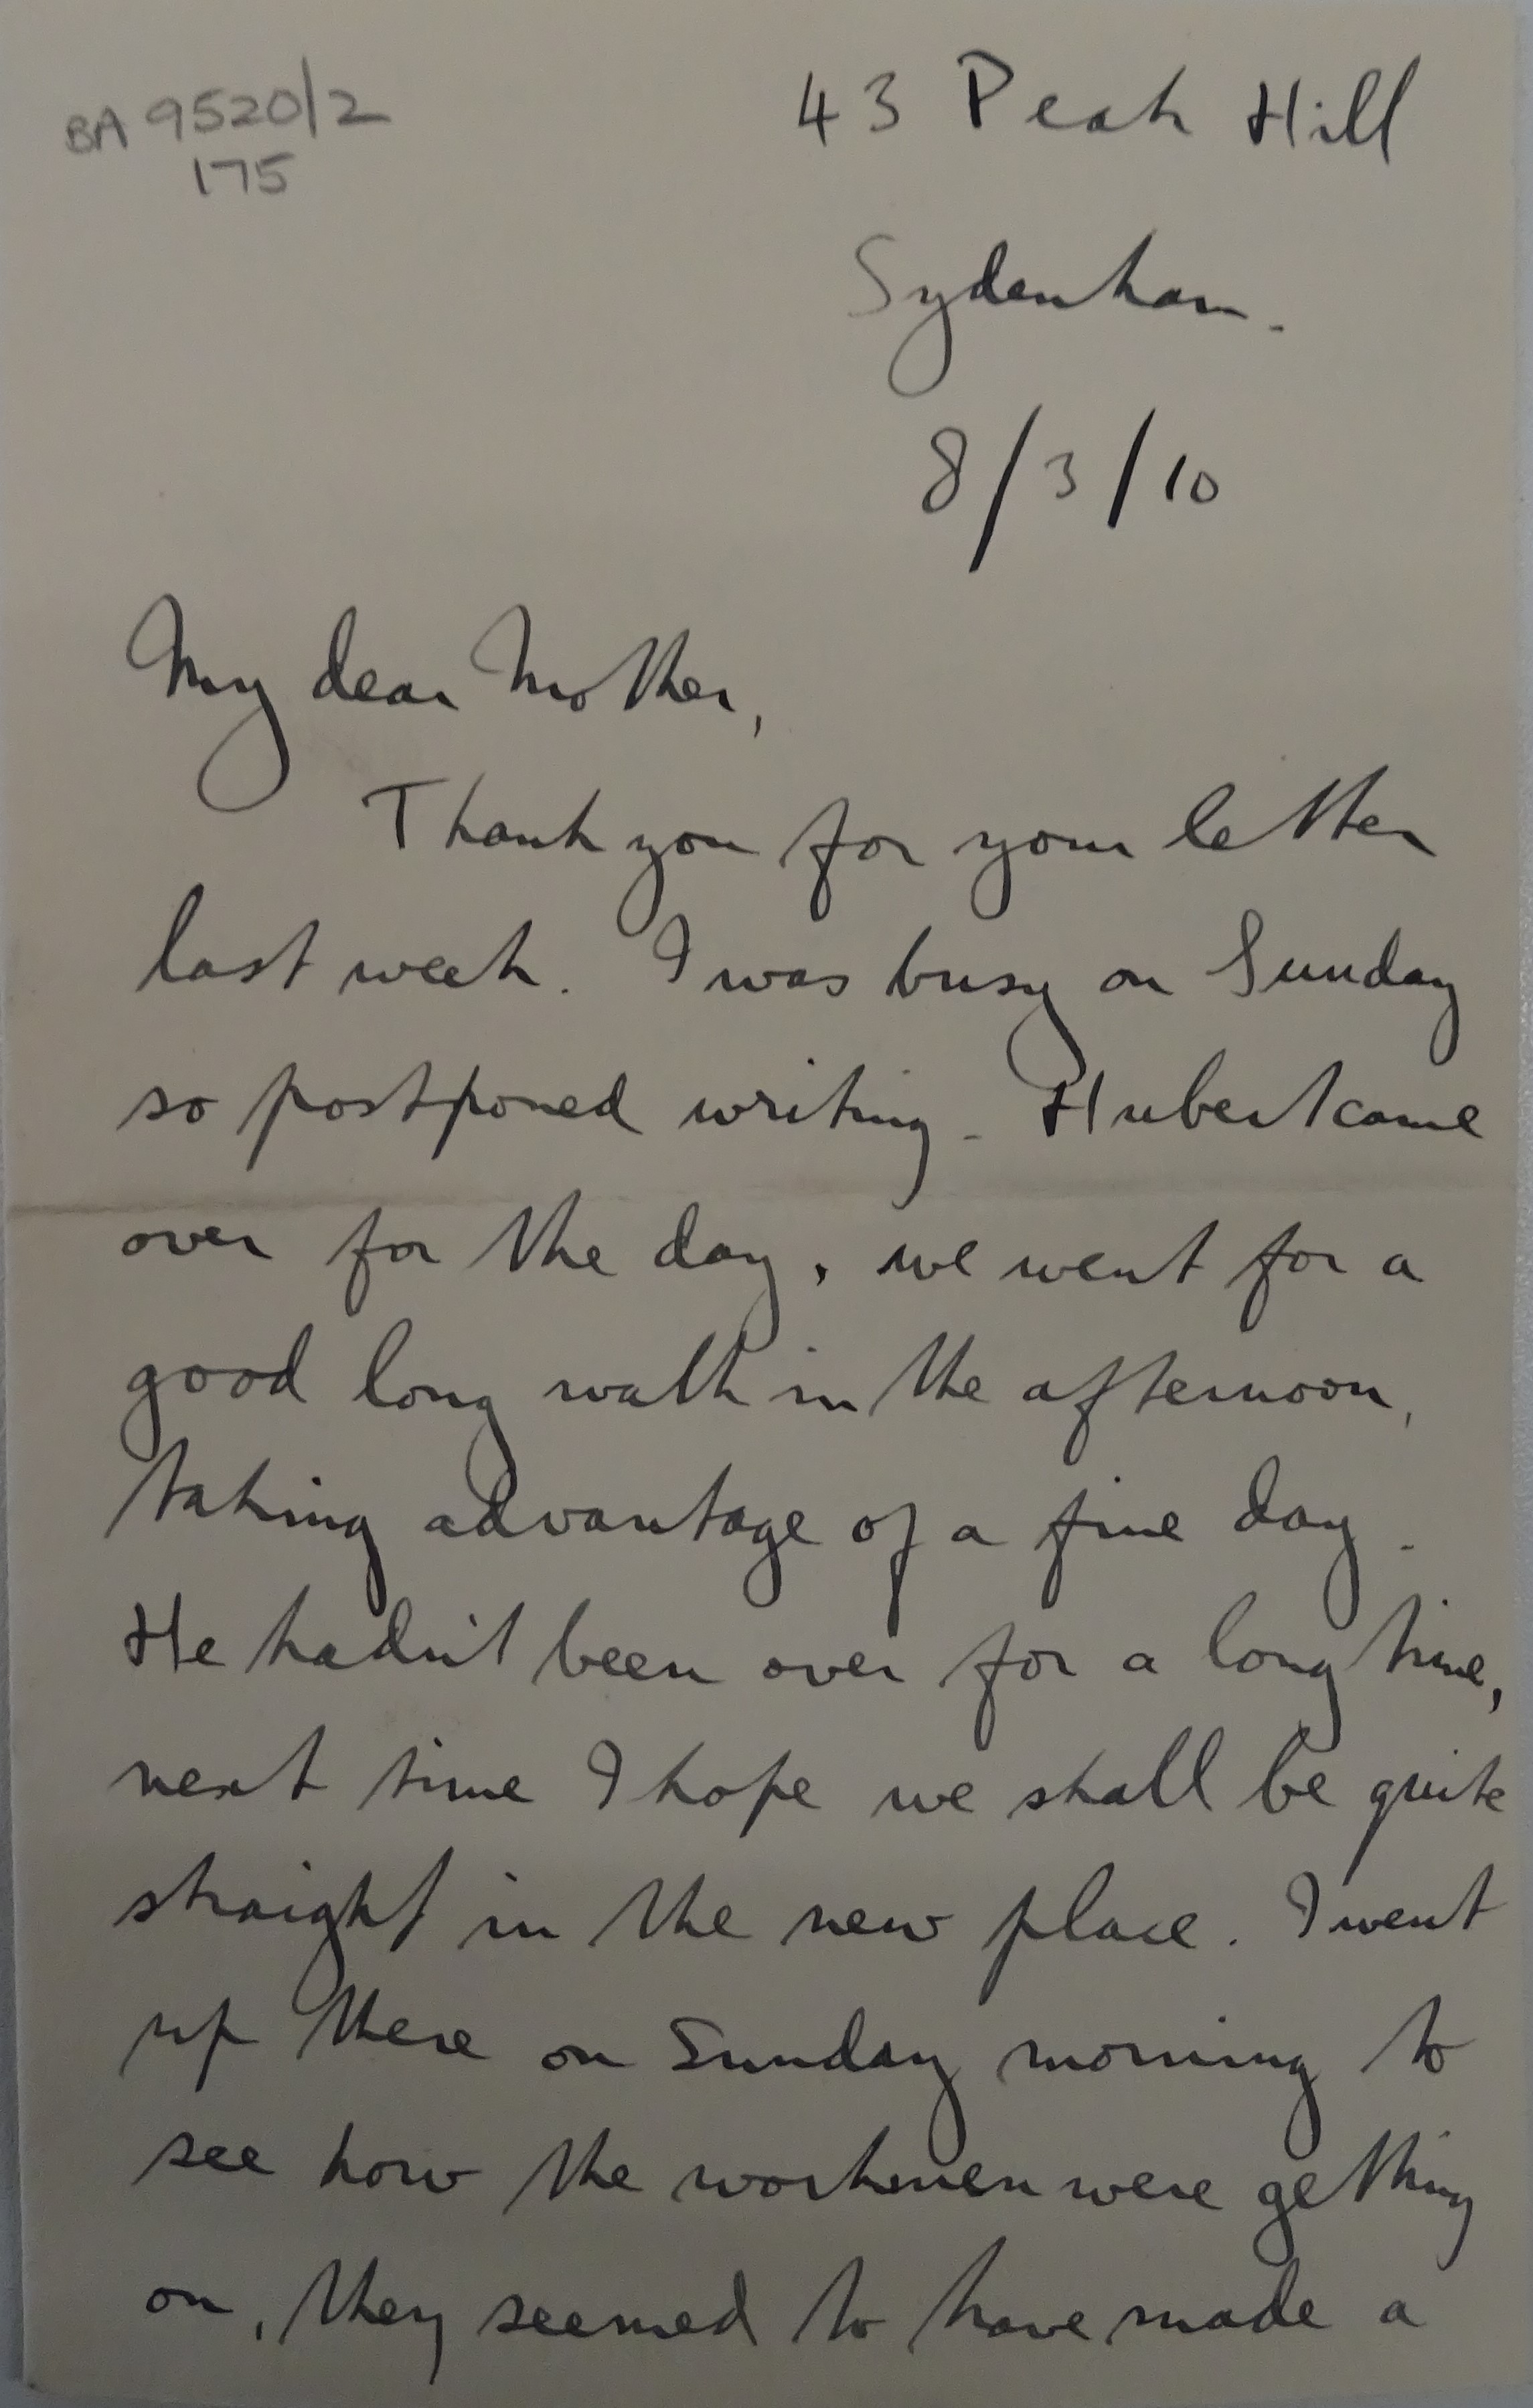 BA 9520/2
175
43 Peak Hill
Sydenham.
8/3/10
My dear Mother,
Thank you for your letter
last week. I was busy on Sunday
so postponed writing. Hubert came
over for the day, we went for a
good long walk in the afternoon,
taking advantage of a fine day.
He hadn't been over for a long time,
next time I hope we shall be quite
straight in the new place. I went
up there on Sunday morning to
see how the workmen were getting
on, they seemed to have made a